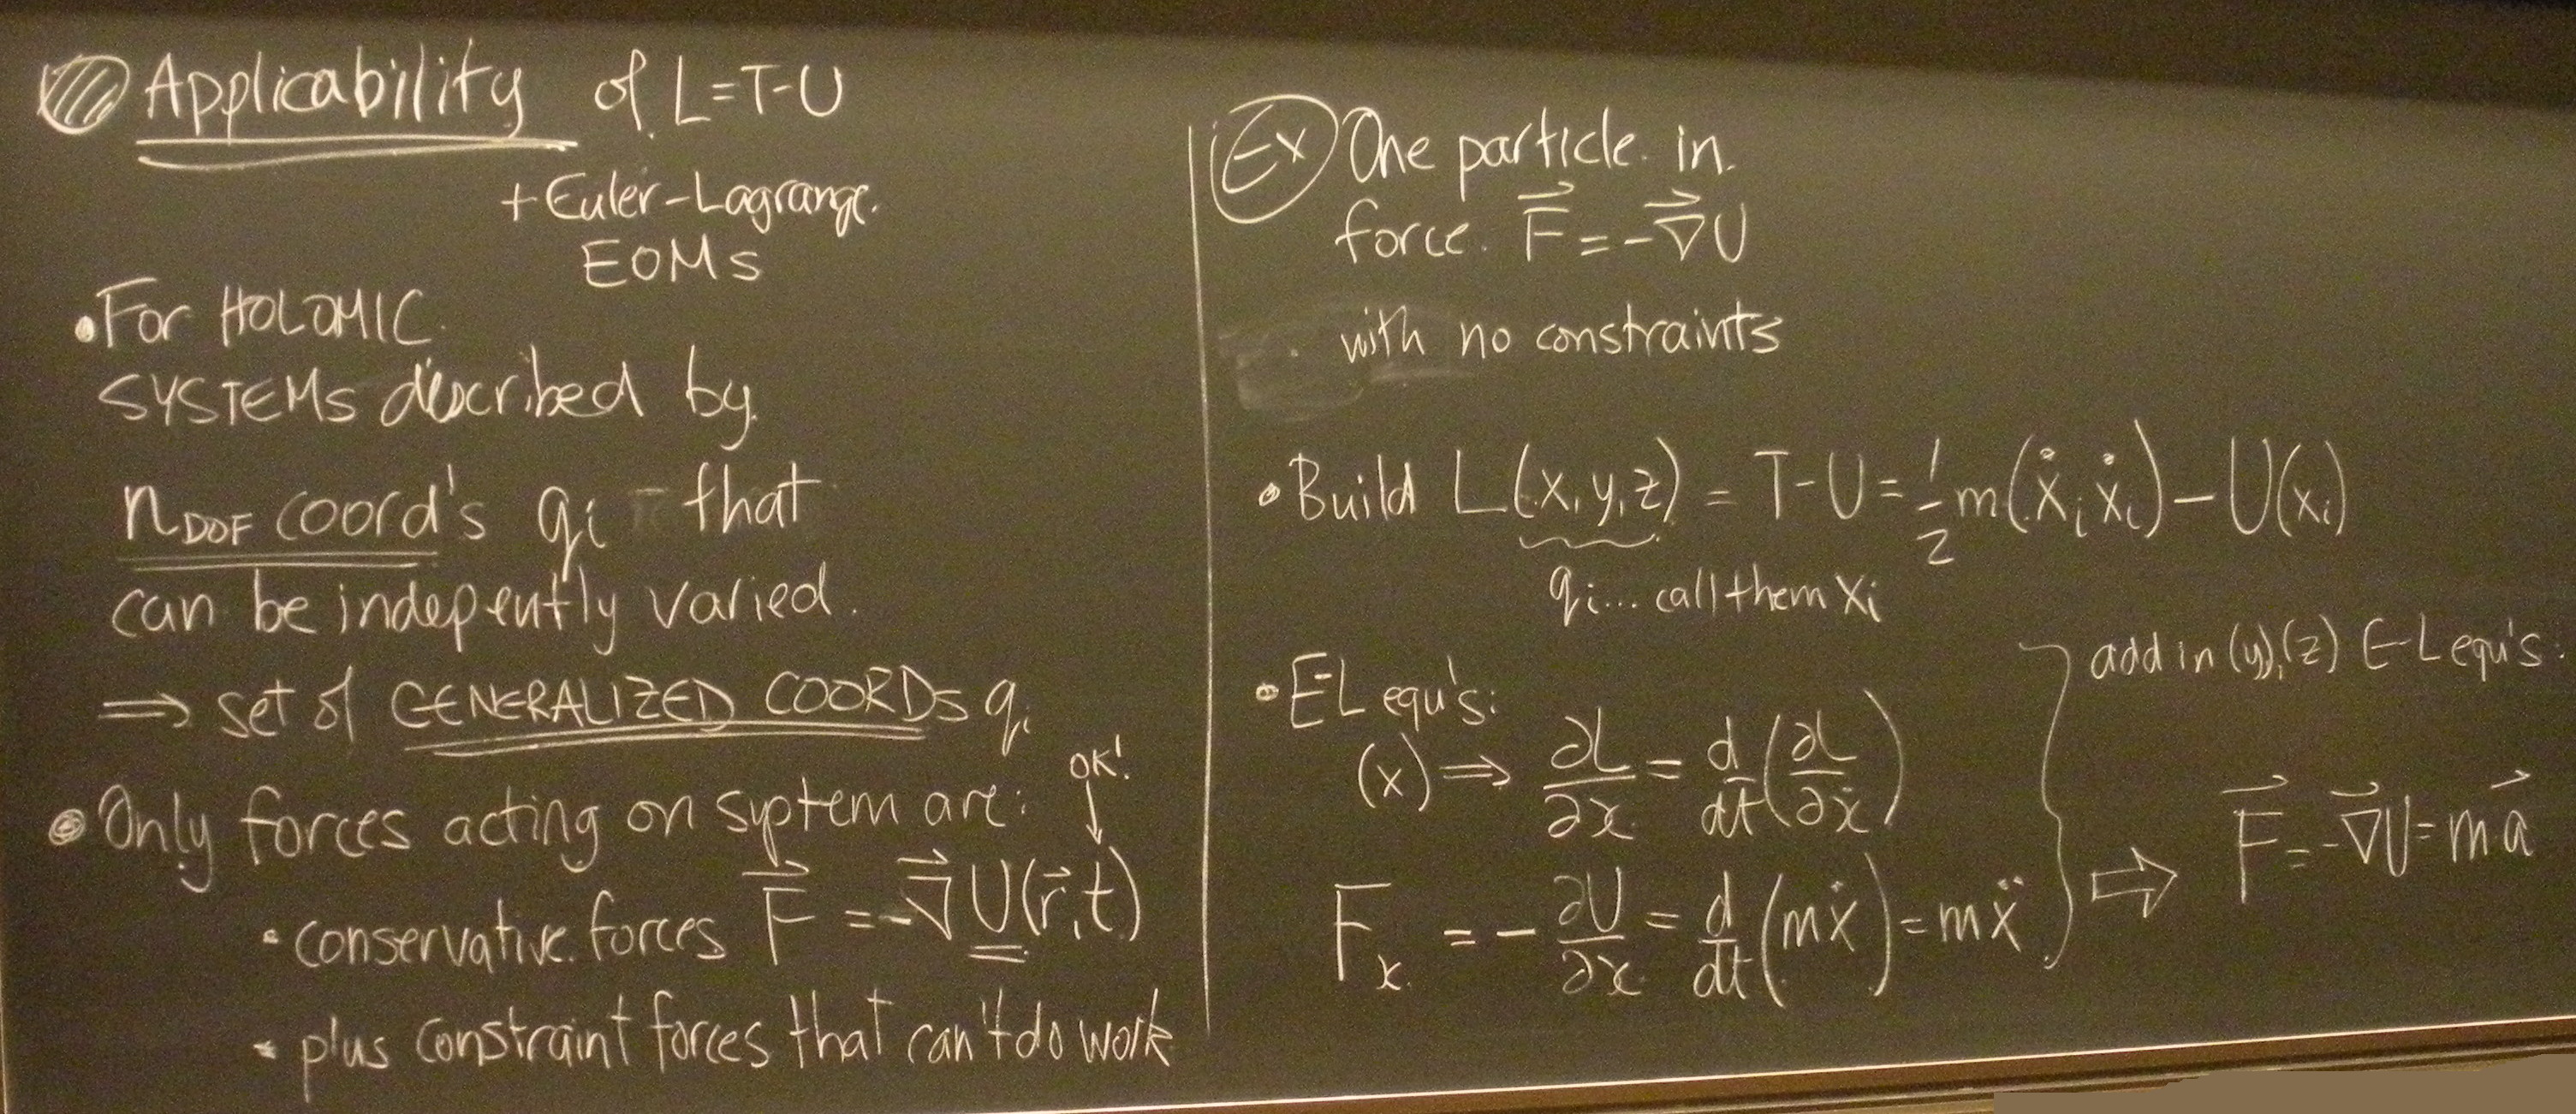 Applicability of L=T-U
+ Euler-Lagrange
EOMs
• For HOLOMIC
SYSTEMs described by
n_DOF coord's q_i that
can be indepently varied.
⟹ set of GENERALIZED COORDs q_i
• Only forces acting on system are:
OK!
↓
• conservative forces \vec{F} = -\vec{∇}U(\vec{r},t)
• plus constraint forces that can't do work
Ex One particle in
force \vec{F} = -\vec{∇}U
with no constraints
• Build L(x,y,z) = T-U = \frac{1}{2}m(\dot{x}_i \dot{x}_i) - U(x_i)
q_i... call them x_i
• E-L equ's:
(x) ⟹ \frac{∂L}{∂x} = \frac{d}{dt}(\frac{∂L}{∂\dot{x}})
F_x = -\frac{∂U}{∂x} = \frac{d}{dt}(m\dot{x}) = m\ddot{x}
add in (y),(z) E-L equ's:
⟹ \vec{F} = -\vec{∇}U = m\vec{a}